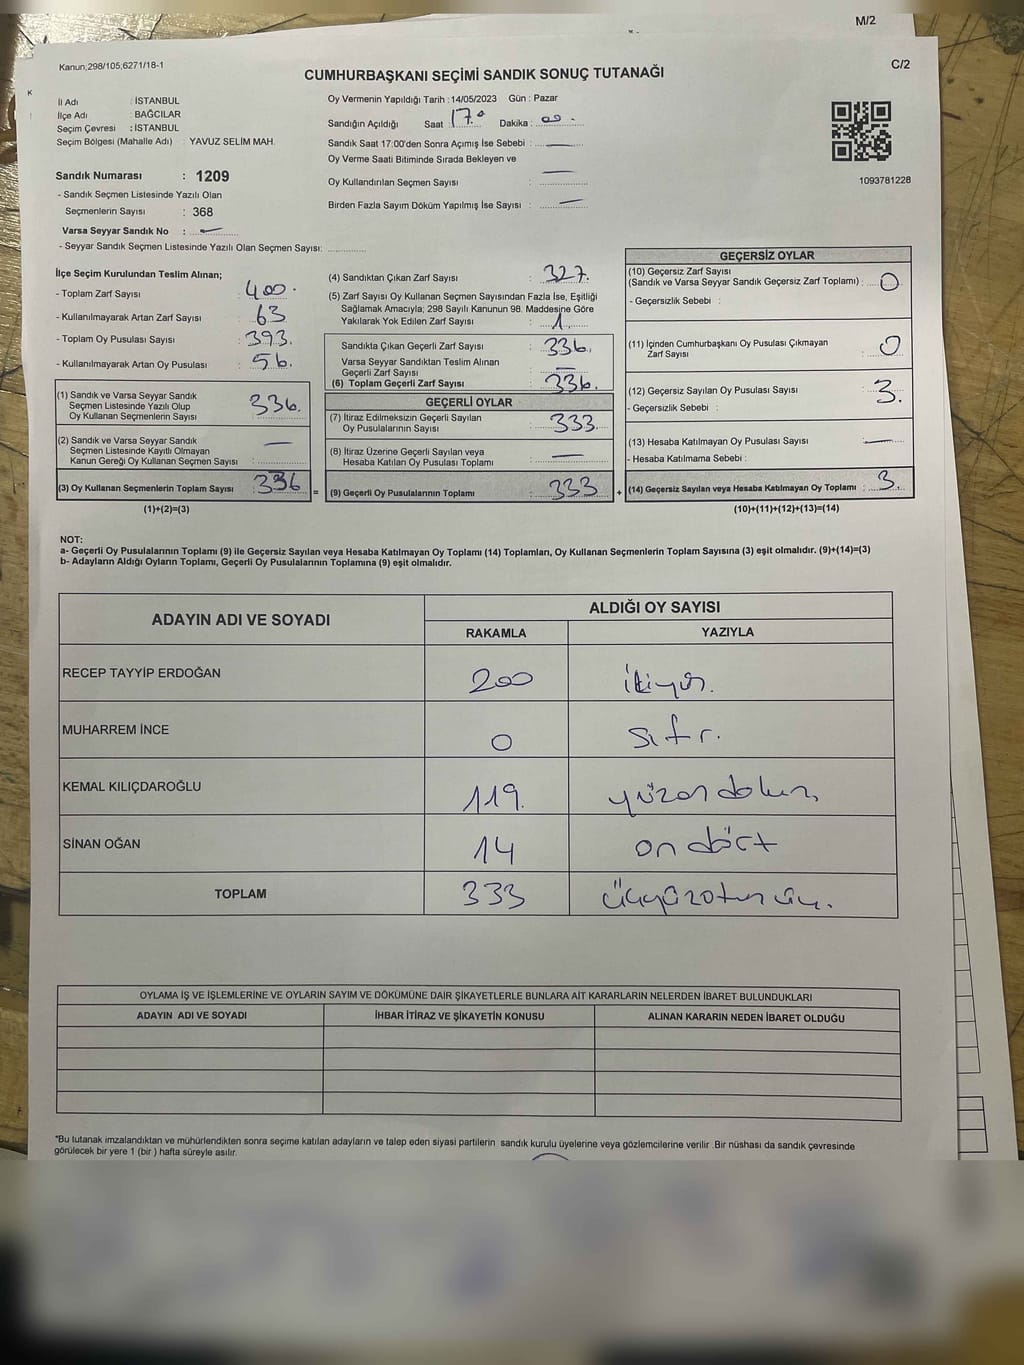 M/2
Kanun,298/105,6271/18-1
C/2
CUMHURBAŞKANI SEÇİMİ SANDIK SONUÇ TUTANAĞI
İl Adı : İSTANBUL
İlçe Adı : BAĞCILAR
Seçim Çevresi : İSTANBUL
Seçim Bölgesi (Mahalle Adı) : YAVUZ SELİM MAH.
Oy Vermenin Yapıldığı Tarih :14/05/2023 Gün : Pazar
Sandığın Açıldığı Saat 17.° Dakika : 00.
Sandık Saat 17:00'den Sonra Açımış İse Sebebi : —
Oy Verme Saati Bitiminde Sırada Bekleyen ve
Oy Kullandırılan Seçmen Sayısı : —
Birden Fazla Sayım Döküm Yapılmış İse Sayısı : —
1093781228
Sandık Numarası : 1209
- Sandık Seçmen Listesinde Yazılı Olan
Seçmenlerin Sayısı : 368
Varsa Seyyar Sandık No : —
- Seyyar Sandık Seçmen Listesinde Yazılı Olan Seçmen Sayısı:
İlçe Seçim Kurulundan Teslim Alınan;
- Toplam Zarf Sayısı : 400.
- Kullanılmayarak Artan Zarf Sayısı : 63
- Toplam Oy Pusulası Sayısı : 393.
- Kullanılmayarak Artan Oy Pusulası : 56.
(1) Sandık ve Varsa Seyyar Sandık
Seçmen Listesinde Yazılı Olup
Oy Kullanan Seçmenlerin Sayısı : 336.
(2) Sandık ve Varsa Seyyar Sandık
Seçmen Listesinde Kayıtlı Olmayan
Kanun Gereği Oy Kullanan Seçmen Sayısı : —
(3) Oy Kullanan Seçmenlerin Toplam Sayısı : 336
(1)+(2)=(3)
=
(4) Sandıktan Çıkan Zarf Sayısı : 327.
(5) Zarf Sayısı Oy Kullanan Seçmen Sayısından Fazla İse, Eşitliği
Sağlamak Amacıyla; 298 Sayılı Kanunun 98. Maddesine Göre
Yakılarak Yok Edilen Zarf Sayısı : 1.
Sandıkta Çıkan Geçerli Zarf Sayısı : 336.
Varsa Seyyar Sandıktan Teslim Alınan
Geçerli Zarf Sayısı : —
(6) Toplam Geçerli Zarf Sayısı : 336.
GEÇERLİ OYLAR
(7) İtiraz Edilmeksizin Geçerli Sayılan
Oy Pusulalarının Sayısı : 333.
(8) İtiraz Üzerine Geçerli Sayılan veya
Hesaba Katılan Oy Pusulası Toplamı : —
(9) Geçerli Oy Pusulalarının Toplamı : 333
+
GEÇERSİZ OYLAR
(10) Geçersiz Zarf Sayısı
(Sandık ve Varsa Seyyar Sandık Geçersiz Zarf Toplamı) : 0
- Geçersizlik Sebebi :
(11) İçinden Cumhurbaşkanı Oy Pusulası Çıkmayan
Zarf Sayısı : 0
(12) Geçersiz Sayılan Oy Pusulası Sayısı : 3.
- Geçersizlik Sebebi :
(13) Hesaba Katılmayan Oy Pusulası Sayısı : —
- Hesaba Katılmama Sebebi :
(14) Geçersiz Sayılan veya Hesaba Katılmayan Oy Toplamı : 3.
(10)+(11)+(12)+(13)=(14)
NOT:
a- Geçerli Oy Pusulalarının Toplamı (9) ile Geçersiz Sayılan veya Hesaba Katılmayan Oy Toplamı (14) Toplamları, Oy Kullanan Seçmenlerin Toplam Sayısına (3) eşit olmalıdır. (9)+(14)=(3)
b- Adayların Aldığı Oyların Toplamı, Geçerli Oy Pusulalarının Toplamına (9) eşit olmalıdır.
ADAYIN ADI VE SOYADI ALDIĞI OY SAYISI
RAKAMLA YAZIYLA
RECEP TAYYİP ERDOĞAN 200 ikiyüz.
MUHARREM İNCE 0 sıfır.
KEMAL KILIÇDAROĞLU 119. yüzondokuz
SİNAN OĞAN 14 on dört
TOPLAM 333 üçyüzotuzüç.
OYLAMA İŞ VE İŞLEMLERİNE VE OYLARIN SAYIM VE DÖKÜMÜNE DAİR ŞİKAYETLERLE BUNLARA AİT KARARLARIN NELERDEN İBARET BULUNDUKLARI
ADAYIN ADI VE SOYADI İHBAR İTİRAZ VE ŞİKAYETİN KONUSU ALINAN KARARIN NEDEN İBARET OLDUĞU
*Bu tutanak imzalandıktan ve mühürlendikten sonra seçime katılan adayların ve talep eden siyasi partilerin sandık kurulu üyelerine veya gözlemcilerine verilir .Bir nüshası da sandık çevresinde
görülecek bir yere 1 (bir ) hafta süreyle asılır.